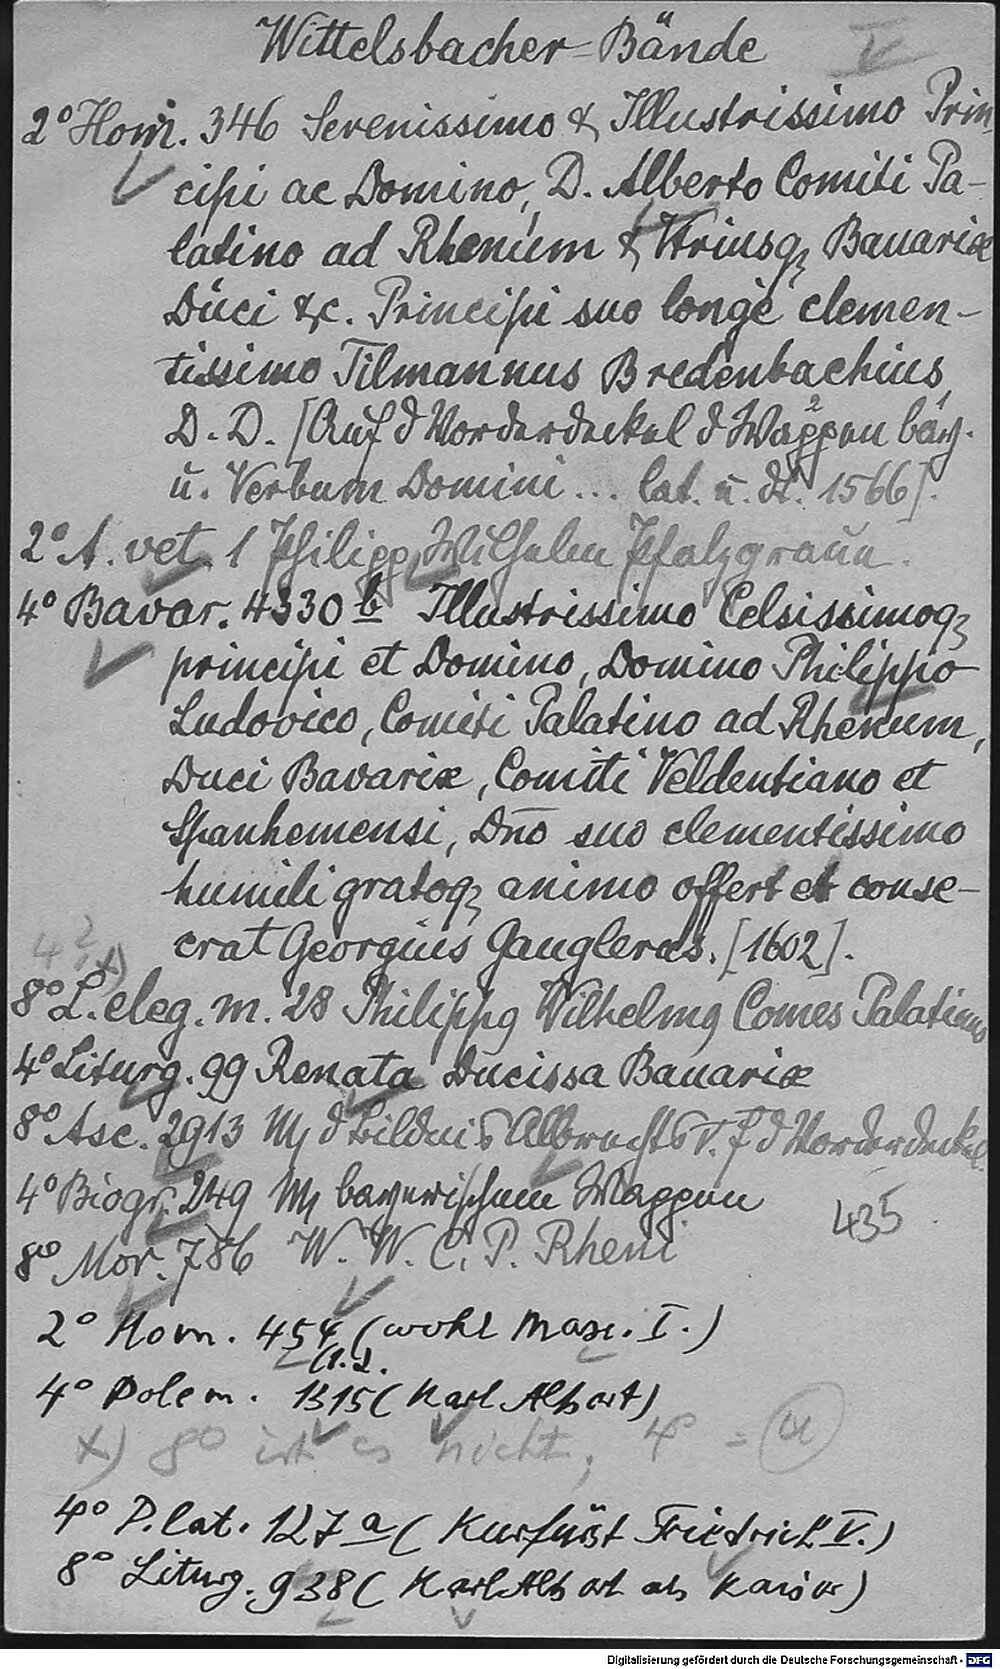 Wittelsbacher=Bände V
2° Hom. 346 Serenissimo & Illustrissimo Prin
cipi ac Domino, D. Alberto Comiti Pa-
latino ad Rhenum & Vtriusqꝫ Bauariæ
Duci &c. Principi suo longè clemen-
tissimo Tilmannus Bredenbachius,
D. D. [Auf d Vorderdeckel d Wappen bay.
u. Verbum Domini ... lat. u. dt. 1566].
2° A. vet. 1 Philipp Wilhelm Pfalzgraue.
4° Bavar. 4330 b Illustrissimo Celsissimoqꝫ
principi et Domino, Domino Philippo
Ludovico, Comiti Palatino ad Rhenum,
Duci Bavariæ, Comiti Veldentiano et
Spanhemensi, Dn̄o suo clementissimo
humili gratoqꝫ animo offert et conse-
crat Georgius Gaugleras. [1602].
4°? x)
8° L. eleg. m. 28 Philippꝰ Wilhelmꝰ Comes Palatinus
4° Liturg. 99 Renata Ducissa Bauariæ
8° Asc. 2913 M d Bildnis Albrechts V. f d Vorderdeckel.
4° Biogr. 249 M bayerischem Wappen
435
8° Mor. 786 W. W. C. P. Rheni
2° Hom. 454 (wohl Max. I.)
4° Polem. 1315 (Karl Albert)
x) 8° ist es nicht, 4° =
4° P. lat. 127 a (Kurfürst Friedrich V.)
8° Liturg. 938 (Karl Albert als Kaiser)
Digitalisierung gefördert durch die Deutsche Forschungsgemeinschaft - DFG